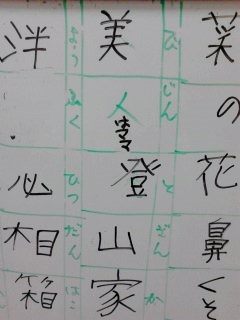 菜の花
鼻くそ
びじん
とざんか
美人
登山家
ようふく
ひつだんばこ
洋
必相箱